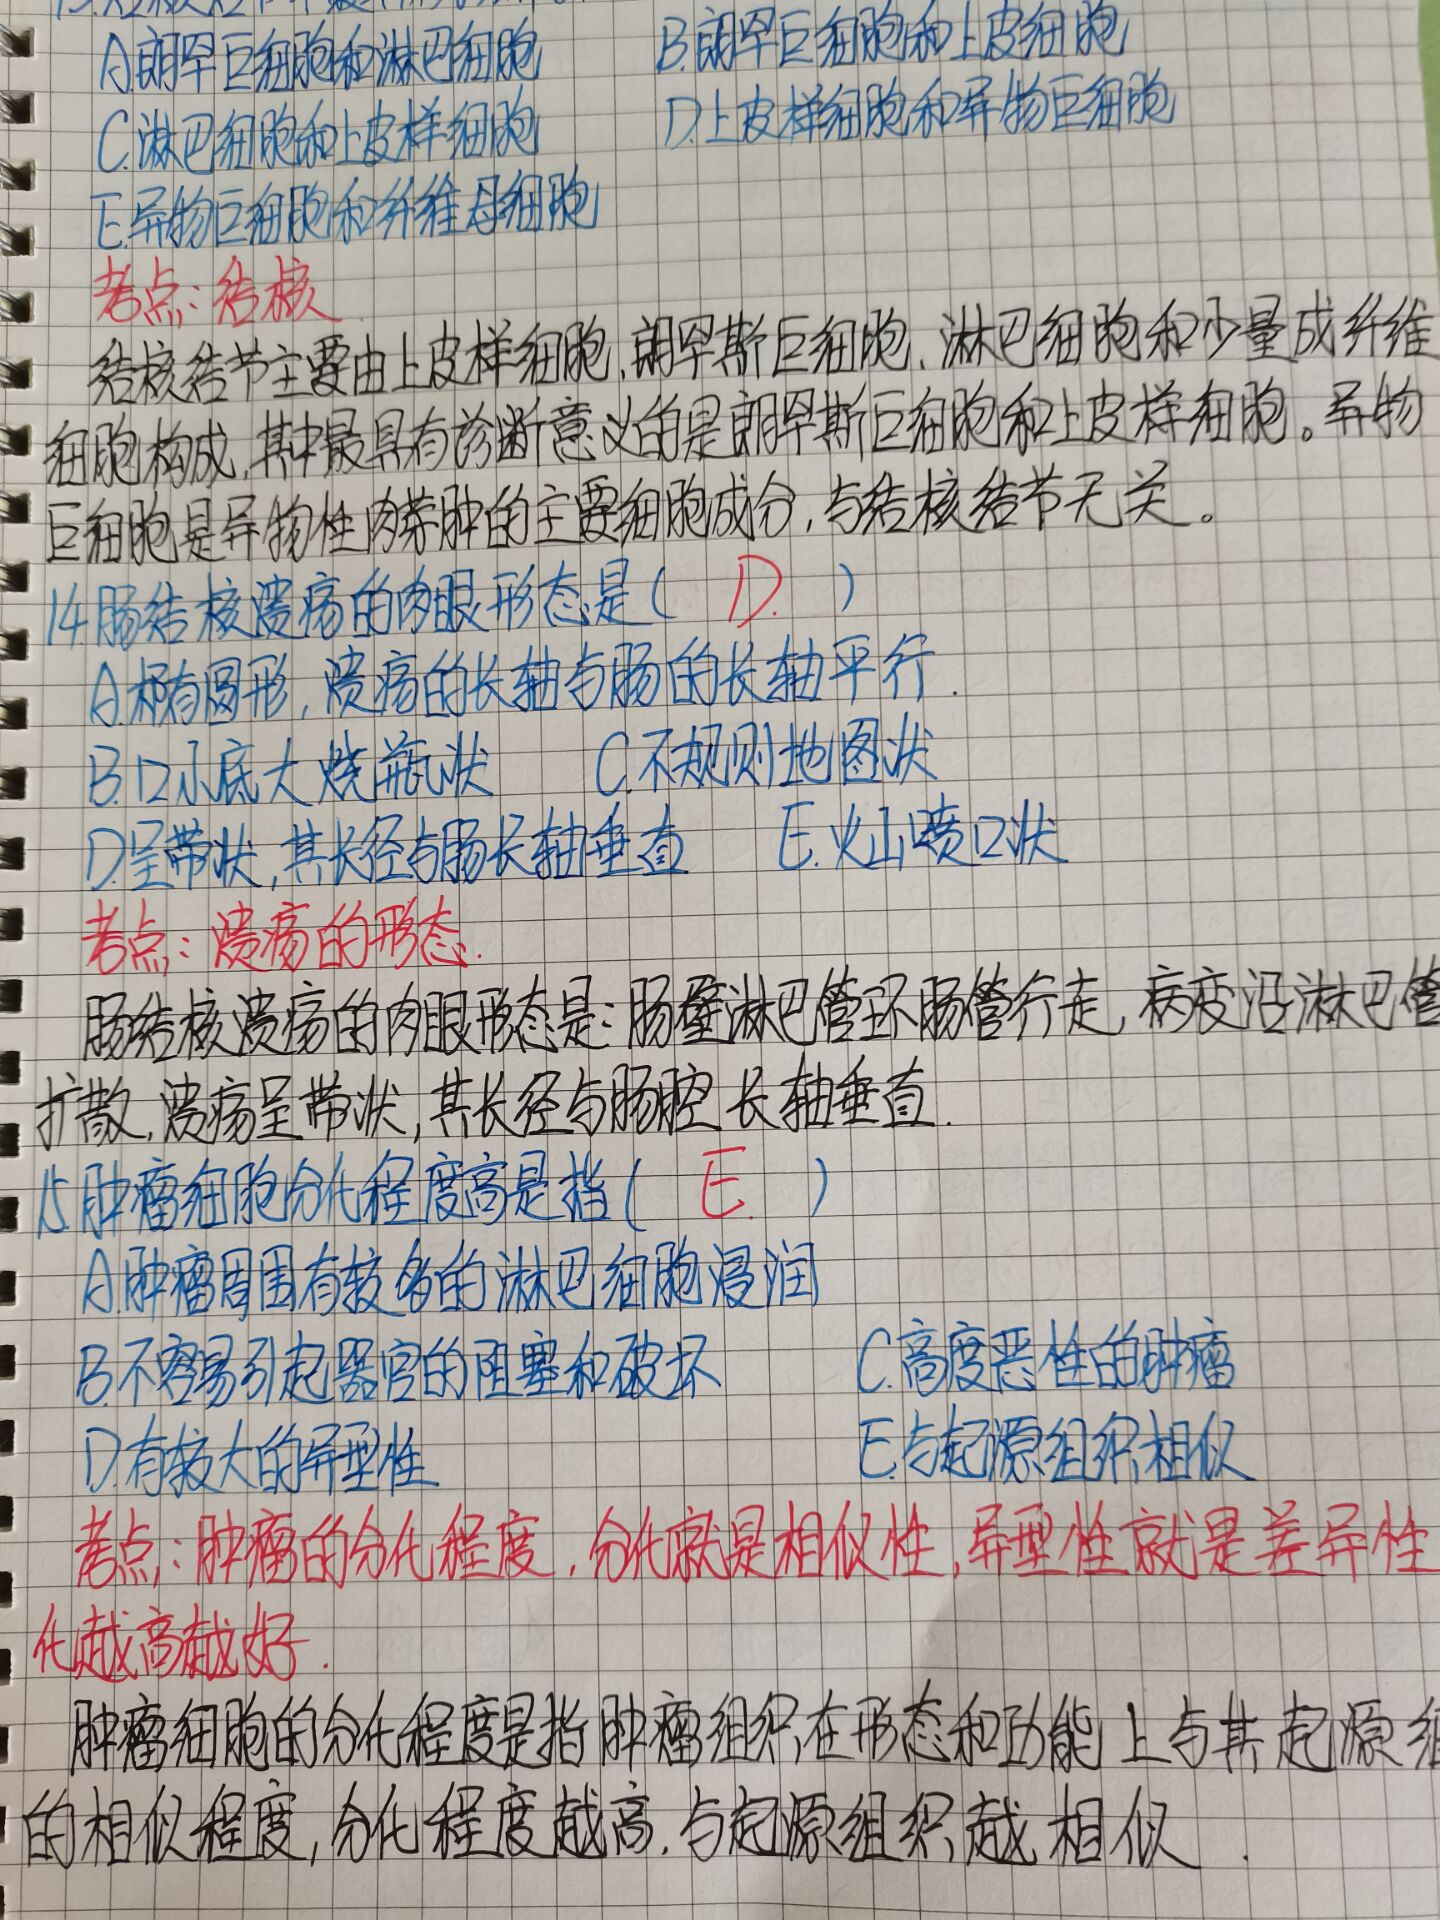 A.朗罕巨细胞和淋巴细胞 B.朗罕巨细胞和上皮细胞
C.淋巴细胞和上皮样细胞 D.上皮样细胞和异物巨细胞
E.异物巨细胞和纤维母细胞
考点:结核
结核结节主要由上皮样细胞,朗罕斯巨细胞,淋巴细胞和少量成纤维
细胞构成,其中最具有诊断意义的是朗罕斯巨细胞和上皮样细胞。异物
巨细胞是异物性肉芽肿的主要细胞成分,与结核结节无关。
14.肠结核溃疡的肉眼形态是( D. )
A.椭圆形,溃疡的长轴与肠的长轴平行.
B.口小底大烧瓶状 C.不规则地图状
D.呈带状,其长径与肠长轴垂直 E.火山喷口状
考点:溃疡的形态.
肠结核溃疡的肉眼形态是:肠壁淋巴管环肠管行走,病变沿淋巴管
扩散,溃疡呈带状,其长径与肠腔长轴垂直.
15.肿瘤细胞分化程度高是指( E. )
A.肿瘤周围有较多的淋巴细胞浸润
B.不容易引起器官的阻塞和破坏 C.高度恶性的肿瘤
D.有较大的异型性 E.与起源组织相似
考点:肿瘤的分化程度,分化就是相似性,异型性就是差异性
化越高越好.
肿瘤细胞的分化程度是指肿瘤组织在形态和功能上与其起源组
的相似程度,分化程度越高,与起源组织越相似.